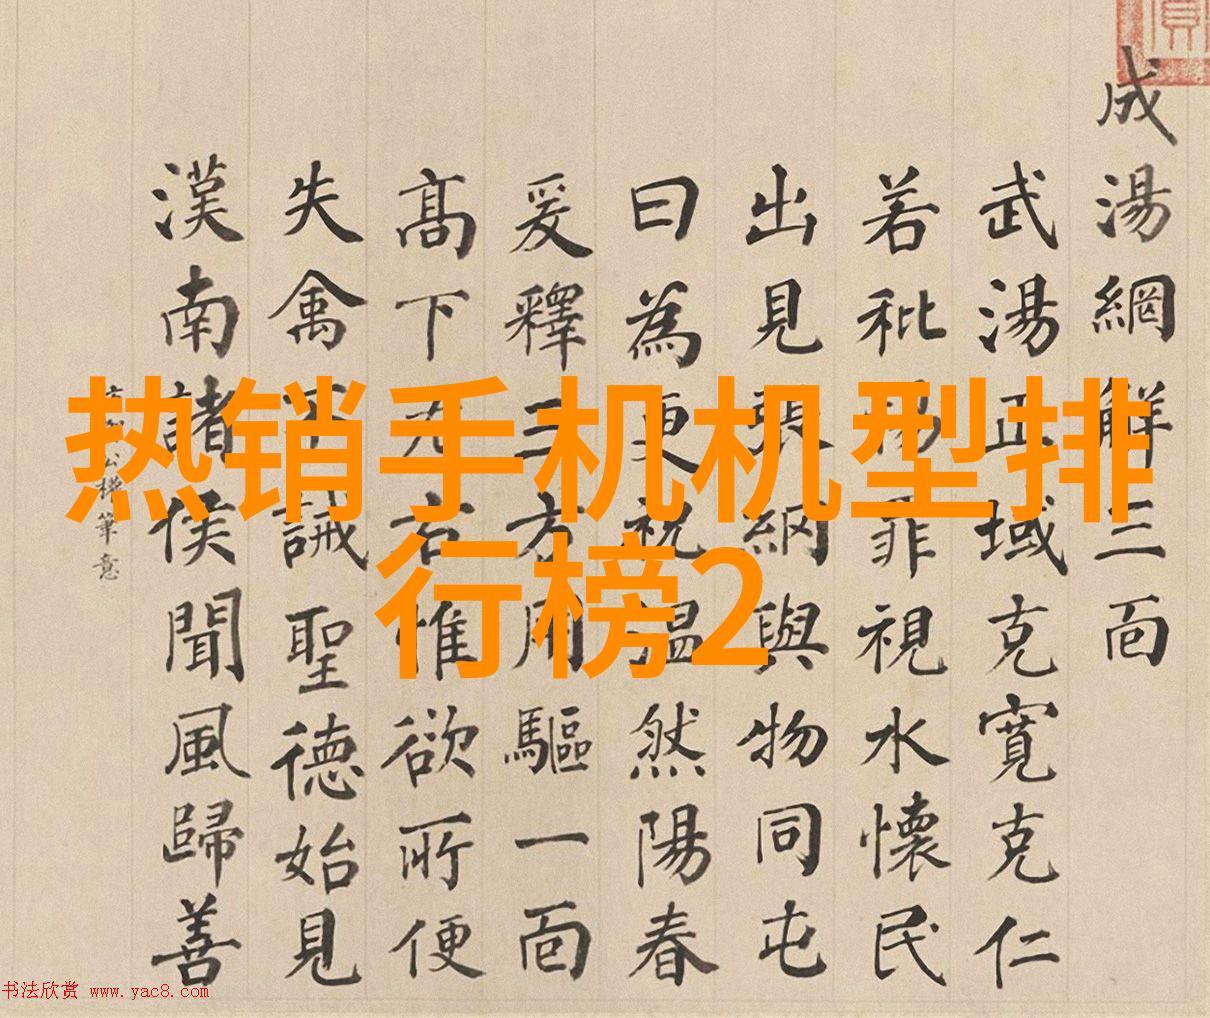 热销手机机型排
行榜2
成湯網解三面
武湯正域克寬克仁
若秕罪視水懷民
出見張網與物同屯
曰為更祝溫然陽春
爰釋三方用驅一面
髙下左右惟欲所便
失禽不誡聖德始見
漢南諸侯聞風歸善
公權筆意
书法欣赏 www.yac8.com